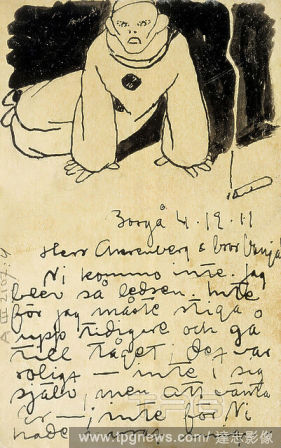 Borgå 4.12.11
Herr Ahrenberg & bror
Ni kommo inte. Jag
blev så ledsen. Inte
för jag måste stiga
upp tidigare och gå
till tåget; det var
roligt — inte i sig
själv, men att vänta
är —; inte för Ni
hade
A III 2107:4
www.ipgnews.com / 達志影像